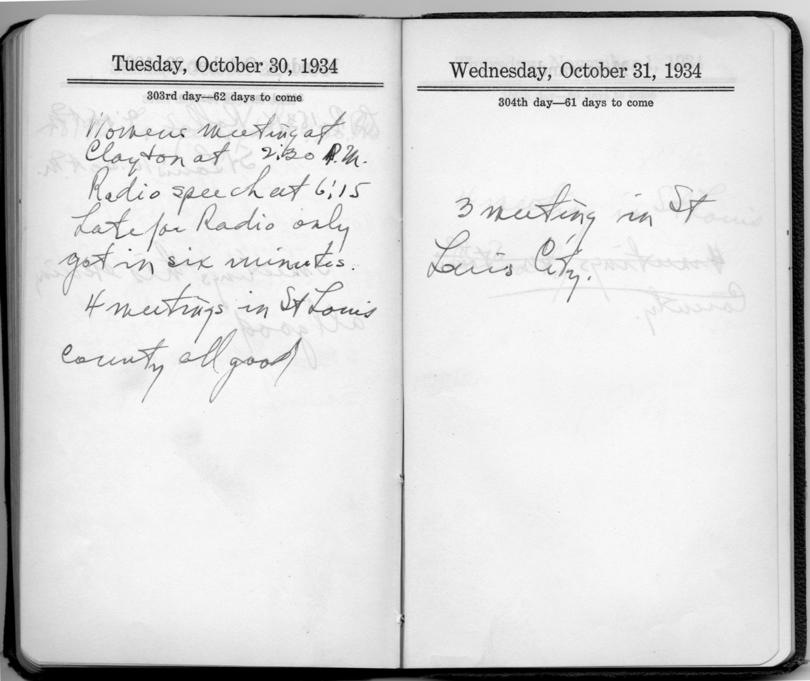 Tuesday, October 30, 1934
303rd day—62 days to come
Womens meeting at
Clayton at 2:30 P.M.
Radio speech at 6:15
Late for Radio only
got in six minutes.
4 meetings in St Louis
County all good
Wednesday, October 31, 1934
304th day—61 days to come
3 meeting in St
Louis City.